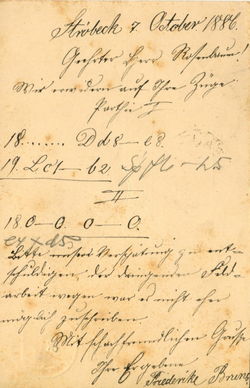 Ströbeck 7. October 1886.
Geehrter Herr Rosenbaum!
Wir erwidern auf Ihre Züge
Parthie I
18. ...... Dd8 – e8.
19. Lc1 – b2.
II
18. 0 – 0. 0 – 0.
e4 x d5
Bitte unsere Verspätung zu ent-
schuldigen, der dringenden Feld-
arbeit wegen war es nicht eher
möglich zuschreiben.
Mit schachfreundlichem Grusse
Ihre Ergebene
Friederike